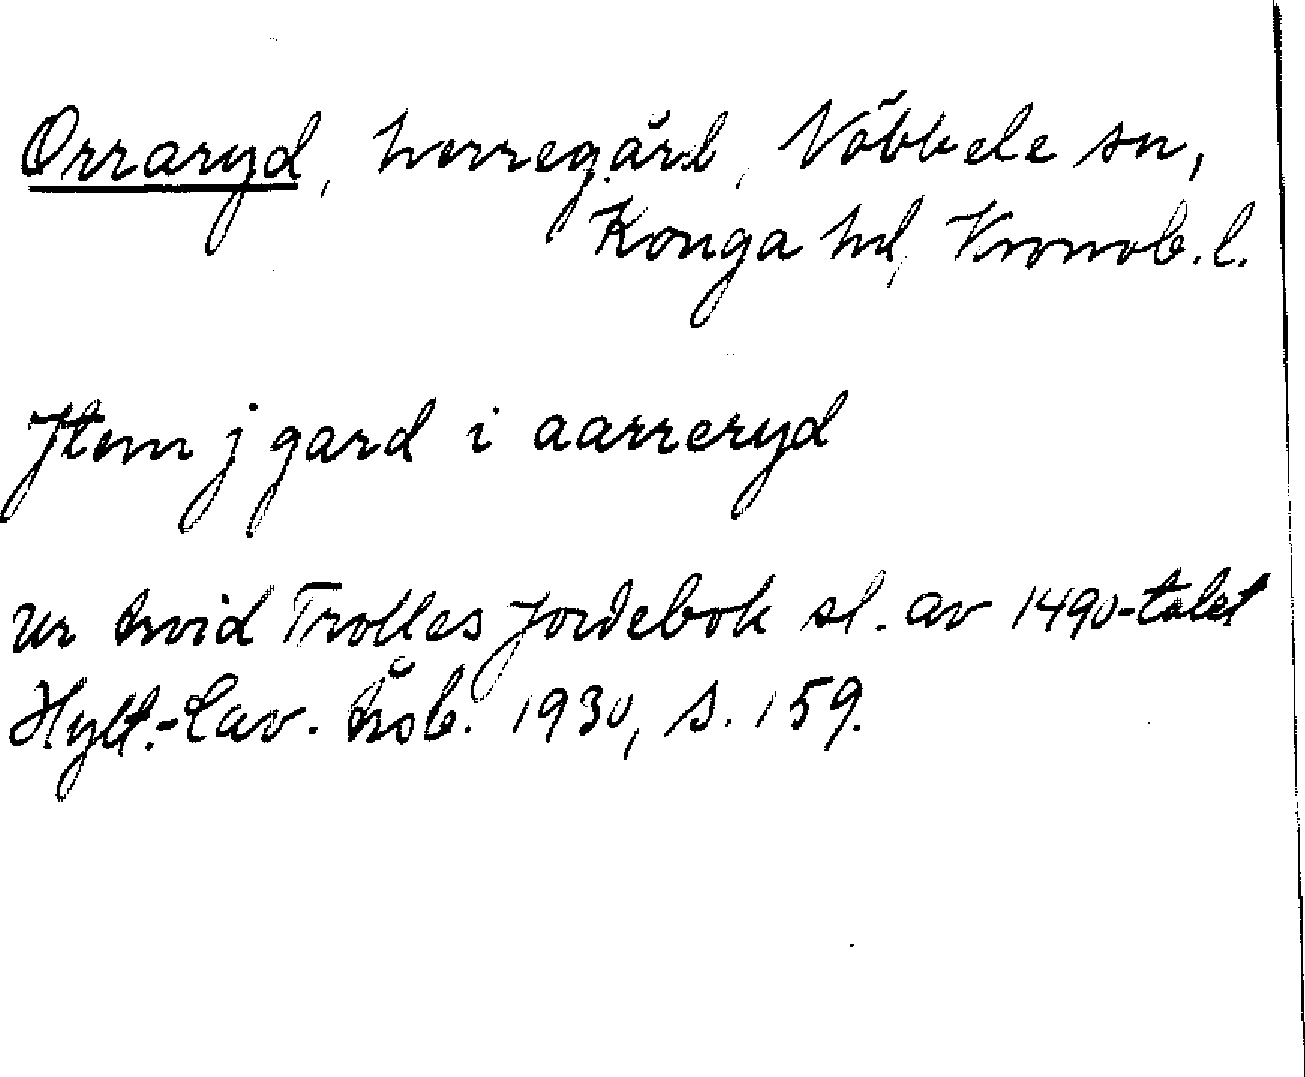 Orraryd, herregård, Nöbbele sn,
Konga hd, Kronob. l.
Item j gard i aarreryd
Ur Arvid Trolles Jordebok sl. av 1490-talet
Hylt.-Cav. Årsb. 1930, s. 159.